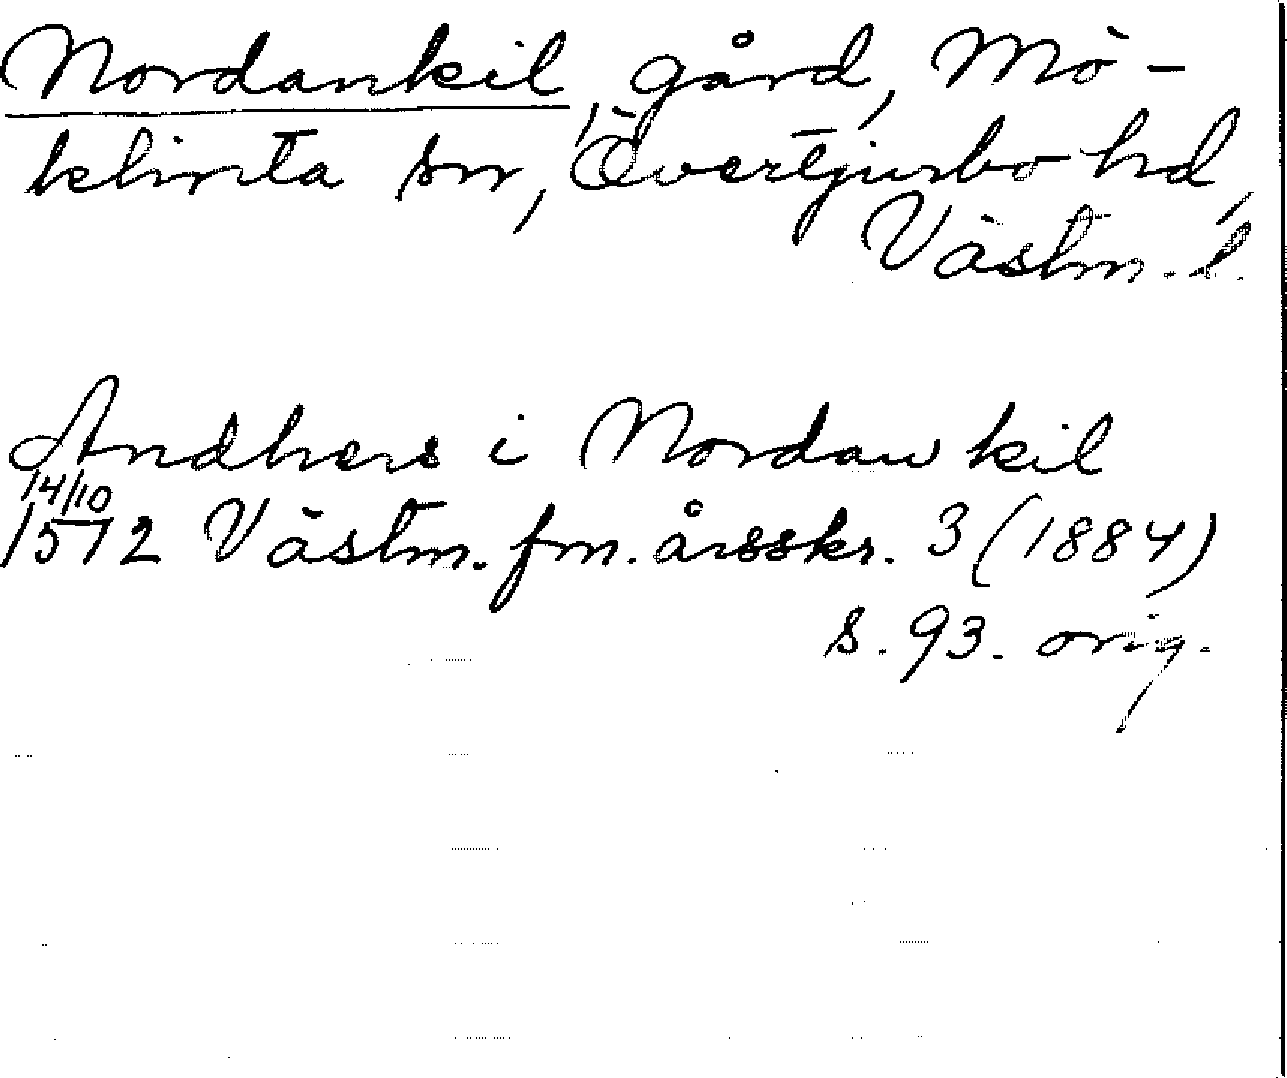 Nordankil, gård, Mö-
klinta sn, Övertjurbo hd,
Västm. l.
Andhers i Nordan kil
14/10
1572 Västm. fm. årsskr. 3 (1884)
s. 93. orig.